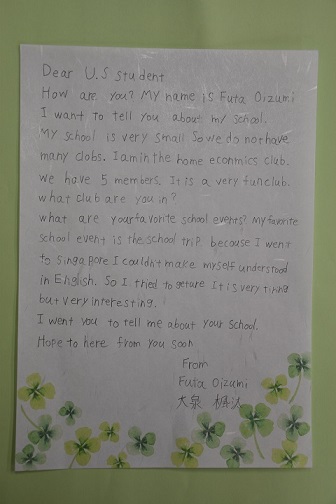 Dear U.S student
How are you? My name is Futa Oizumi
I want to tell you about my school.
My school is very small So we do not have
many clobs. I am in the home econmics club.
We have 5 members. It is a very fun club.
what club are you in?
what are your favorite school events? My favorite
school event is the school trip because I went
to Singapore I couldn't make myself understood
in English. So I tried to geture It is very
but very interesting.
I went you to tell me about your school.
Hope to here from you soon
From
Futa Oizumi
大泉 楓汰